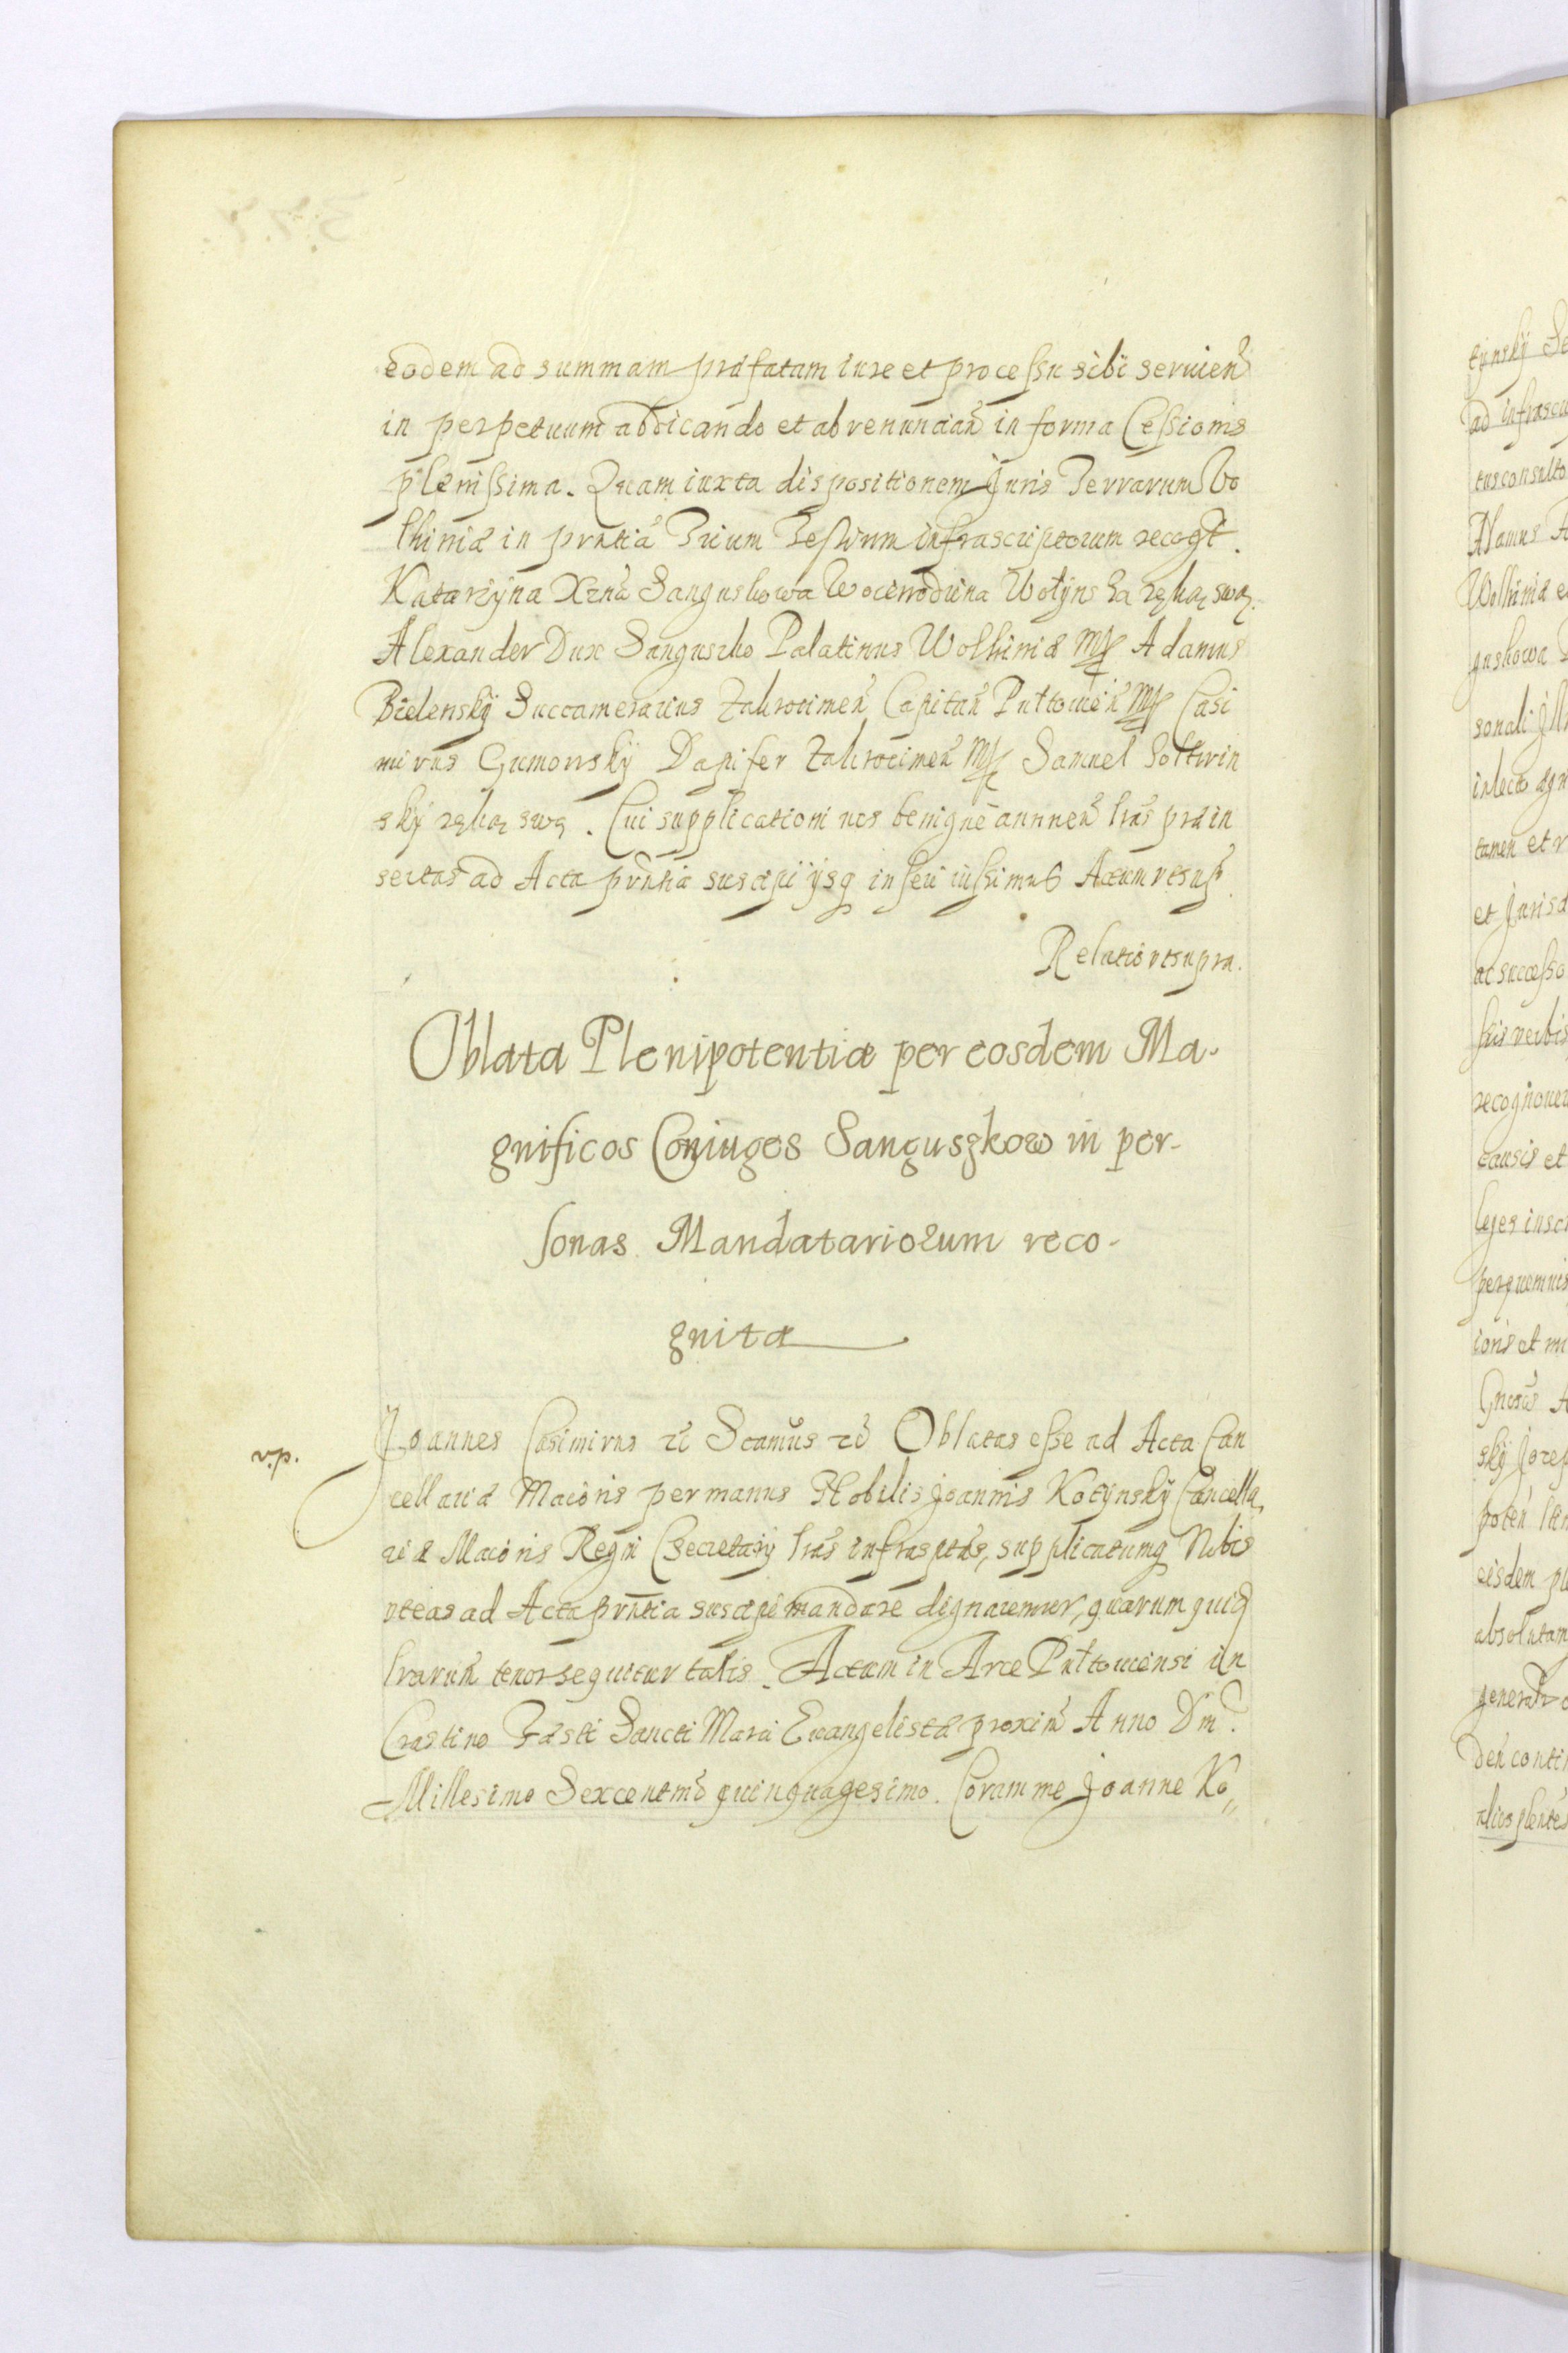 eodem ad summam præfatam iure et processu sibi seruien
in perpetuum abdicando et abrenuncian in forma Cessionis
plenissima. Quam iuxta dispositionem Juris Terrarum Vo
lhiniæ in prntia Trium Testium infrascriptorum recogt.
Katarzÿna Xzna Sanguskowa Woiewodzina Wołÿnska ręką swą.
Alexander Dux Sanguszko Palatinus Wolhiniæ mp Adamus
Bielenskÿ Succamerarius Zakrocimen Capitan Pułtouien mp Casi
mirus Gumowskÿ Dapifer Zakrocimen mp Samuel Sołtwin
skÿ ręką swą. Cui supplicationi nos benigne annuen lras præin
sertas ad Acta prntia suscipi ÿsq inseri iussimus Actum vt supr
Relatio vt supra.
Oblata Plenipotentiæ per eosdem Ma-
gnificos Coniuges Sanguszkow in per-
sonas Mandatariorum reco-
gnita
v.p.
Joannes Casimirus etc Sctamus etc Oblatas esse ad Acta Can
cellariæ Maioris per manus Nobilis Joannis Kotÿnskÿ Cancella,
riæ Maioris Regni Secretarÿ lras infrasptas, supplicatumq Nobis
vt eas ad Acta prntia suscipi mandare dignaremur, quarum quid
lrarum tenor sequitur talis. Actum in Arce Pułtouiensi in
Crastino Fæsti Sancti Marci Euangelistæ proxim Anno Dni
Millesimo Sexcentmo quinquagesimo. Coram me Joanne Ko„
tÿnskÿ Se
ad infrascr
tus consulto
Adamus
Wolhiniæ e
guskowa
sonali Jll
inlecto
tanen et
et Jurisd
ac successo
suis verbis
recognouer
causis et
leges inscr
per quemuis
ionis et m
Gnosus A
skÿ Joze
poten
eisdem pl
absolutam
general
den conti
alios plentes